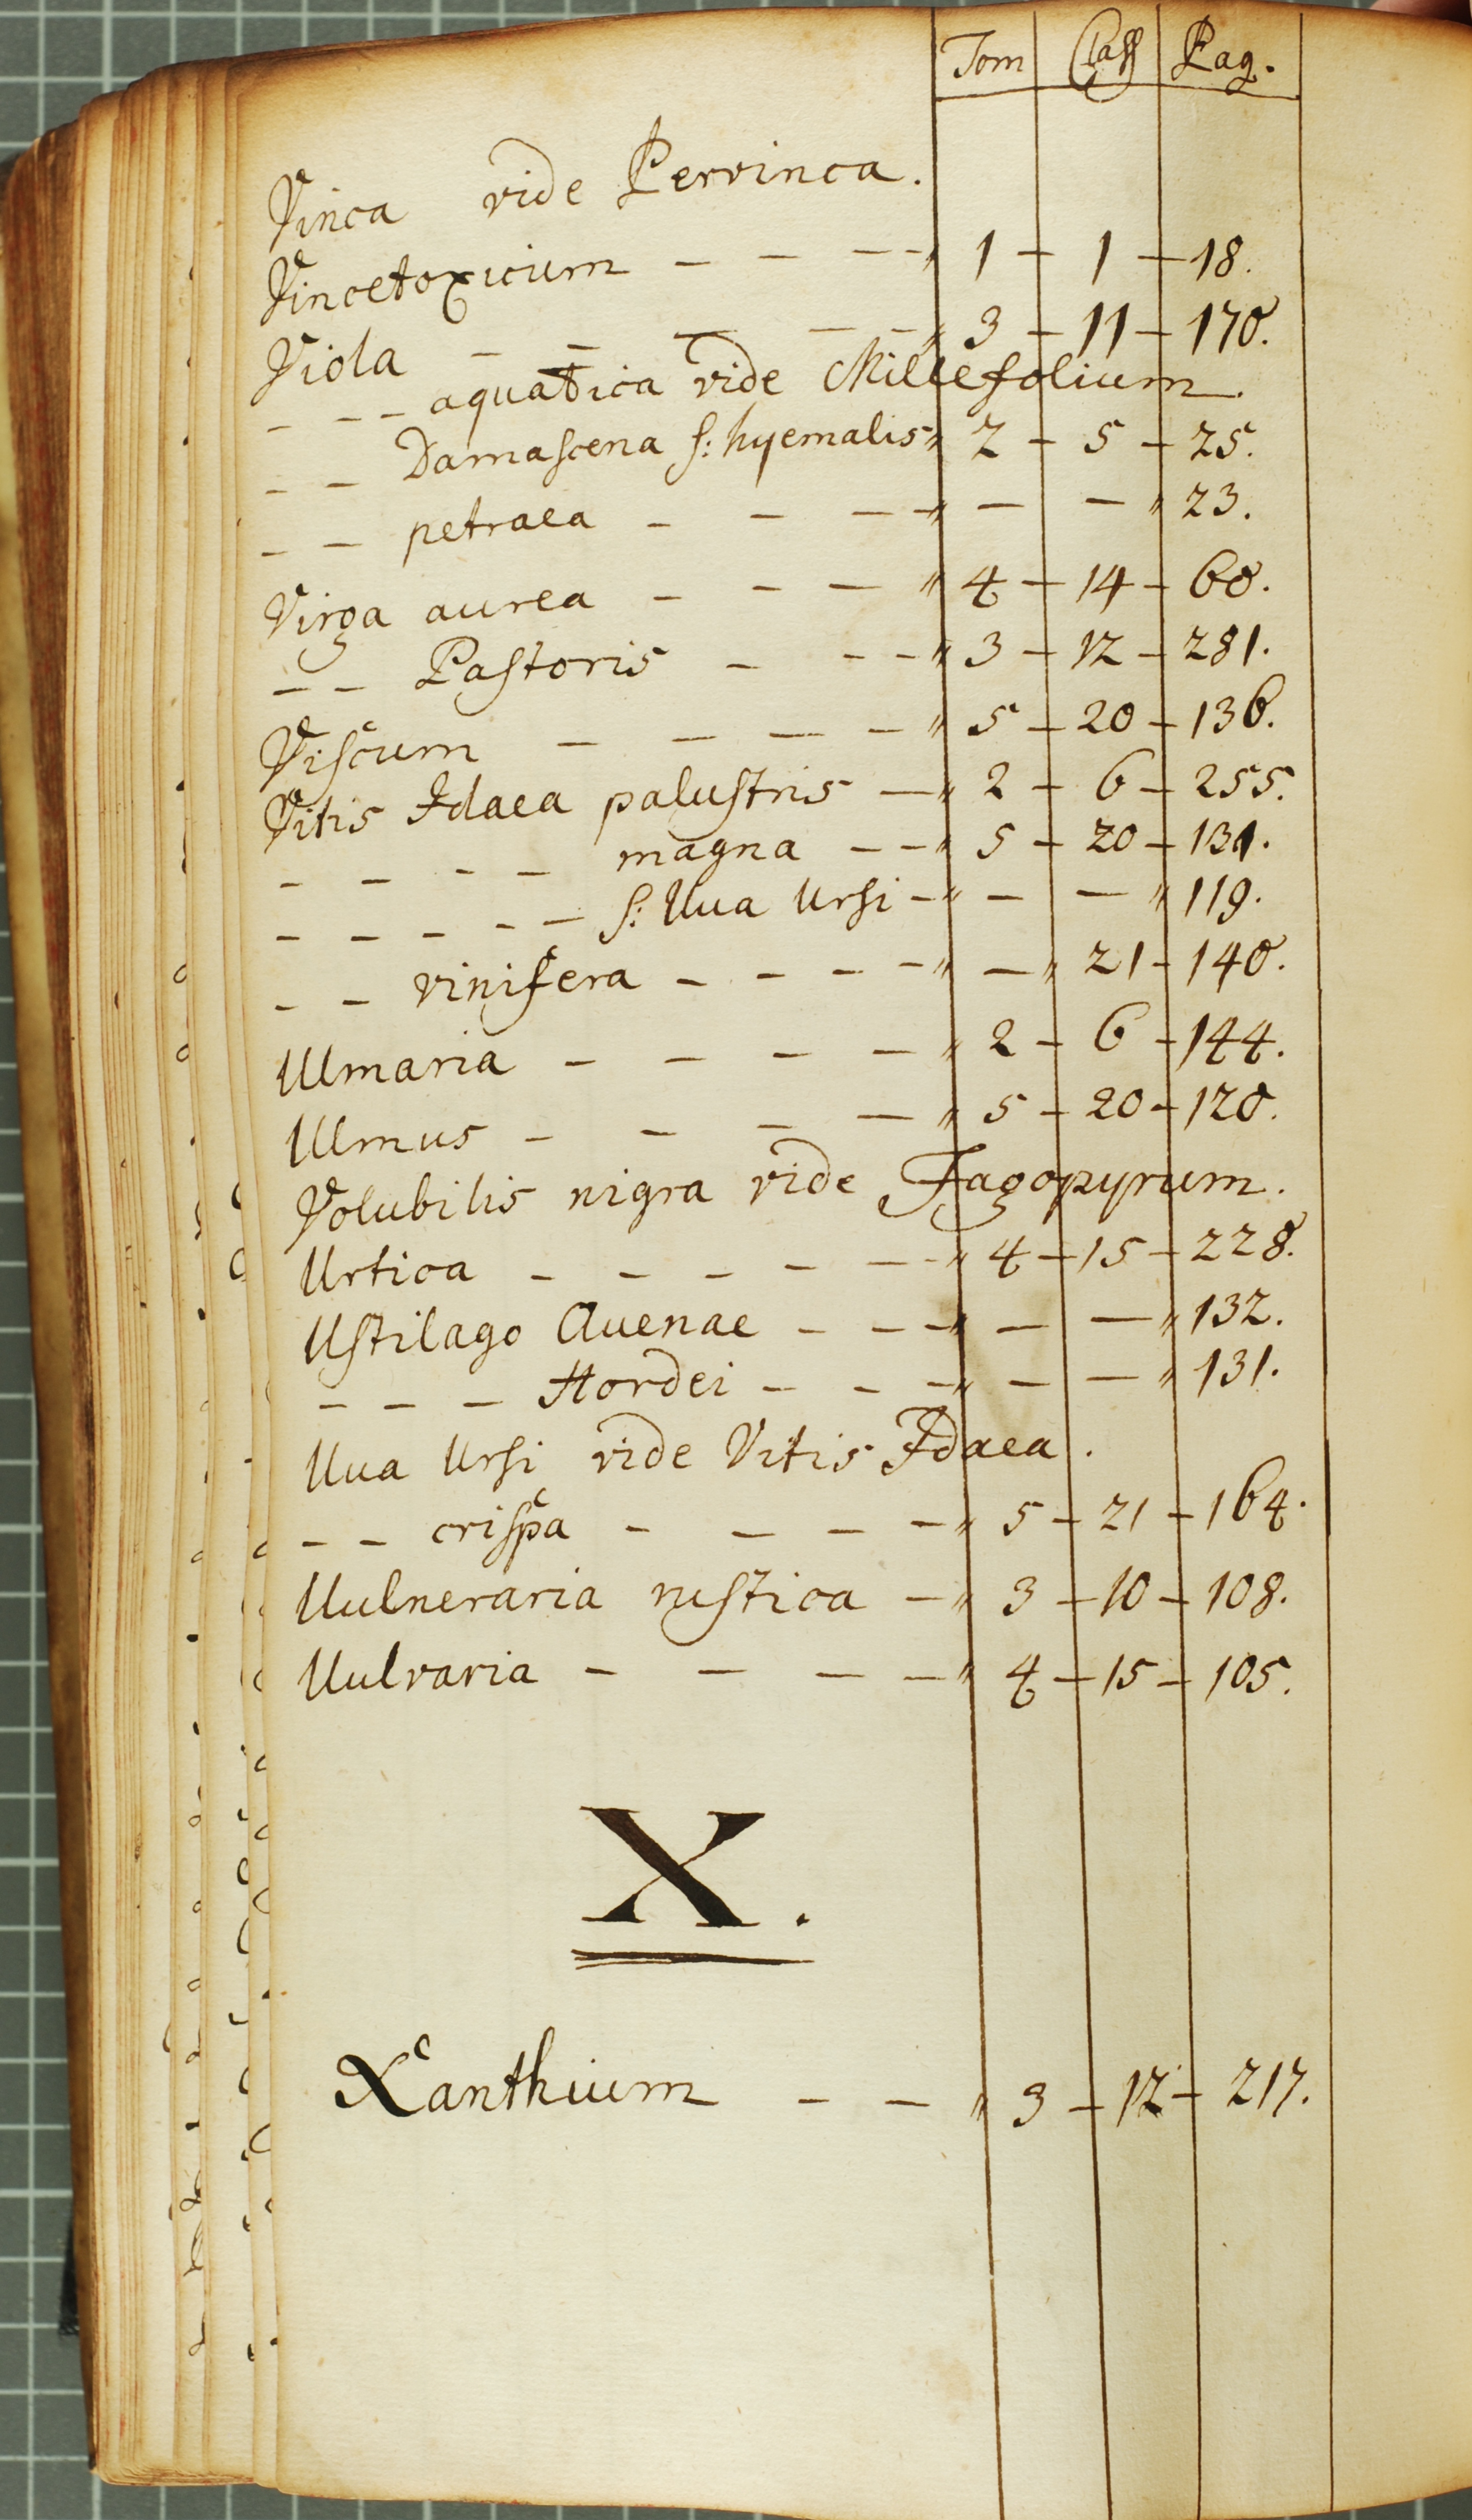 Tom Class Pag.
Vinca vide Pervinca.
Vincetoxicum - - - - " 1 - 1 - 18.
Viola - - - - - " 3 - 11 - 170.
- - - aquatica vide Millefolium.
- - Damascena s: hyemalis " 2 - 5 - 25.
- - petraea - - - - " - - " 23.
Virga aurea - - - " 4 - 14 - 60.
- - Pastoris - - - " 3 - 12 - 281.
Viscum - - - - " 5 - 20 - 136.
Vitis Idaea palustris - " 2 - 6 - 255.
- - - - magna - - " 5 - 20 - 131.
- - - - - s: Uua Ursi - " - - " 119.
- - vinifera - - - - " - " 21 - 140.
Ulmaria - - - - " 2 - 6 - 144.
Ulmus - - - - " 5 - 20 - 120.
Volubilis nigra vide Fagopyrum.
Urtica - - - - - - " 4 - 15 - 228.
Ustilago Auenae - - - " - - " 132.
- - - Hordei - - - " - - " 131.
Uua Ursi vide Vitis Idaea.
- - crispa - - - - " 5 - 21 - 164.
Uulneraria rustica - " 3 - 10 - 108.
Uulvaria - - - - " 4 - 15 - 105.
X.
Xanthium - - " 3 - 12 - 217.